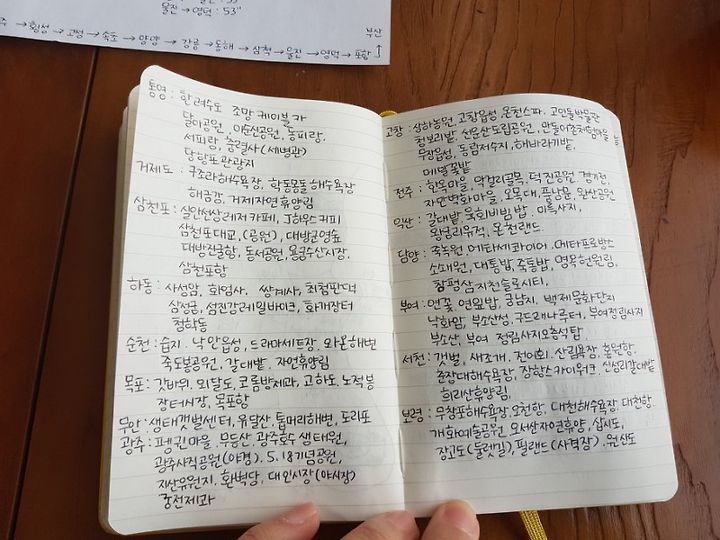 울진 → 영덕 : 53"
→ 횡성 → 고성 → 속초 → 양양 → 강릉 → 동해 → 삼척 → 울진 → 영덕 → 포항
부산
통영 : 한려수도 조망 케이블카
달아공원, 이순신공원, 동피랑,
서피랑, 충렬사(세병관)
당항포관광지
거제도 : 구조라해수욕장, 학동몽돌해수욕장
해금강, 거제자연휴양림
삼천포 : 실안선상레저카페, J하우스커피
삼천포대교,(공원), 대방군영숲
대방진굴항, 동서공원, 용궁수산시장,
삼천포항
하동 : 사성암, 화엄사, 쌍계사, 최참판댁
삼성궁, 섬진강레일바이크, 화개장터
청학동
순천 : 습지, 낙안읍성, 드라마세트장, 와온해변
죽도봉공원, 갈대밭, 자연휴양림
목포 : 갓바위, 외달도, 코롬방제과, 고하도, 노적봉
장터시장, 목포항
무안 : 생태갯벌센터, 유달산, 톱머리해변, 도리포
광주 : 펭귄마을, 무등산, 광주호수생태원,
광주사직공원(야경), 5.18기념공원,
지산유원지, 환벽당, 대인시장(야시장)
궁전제과
고창 : 상하농원, 고창읍성, 온천스파, 고인돌박물관
청보리밭, 선운산도립공원, 만돌어촌체험마을
무장읍성, 동림저수지, 해바라기밭,
메밀꽃밭
전주 : 한옥마을, 막걸리골목, 덕진공원, 경기전,
자만벽화마을, 오목대, 풍남문, 완산공원
익산 : 갈대밭, 육회비빔밥, 미륵사지,
왕궁리유적, 온천랜드
담양 : 죽녹원, 메타세쿼이아, 메타프로방스
소쇄원, 대통밥, 죽통밥, 명옥헌원림,
창평삼지천슬로시티,
부여 : 연꽃, 연잎밥, 궁남지, 백제문화단지
낙화암, 부소산성, 구드래나루터, 부여정림사지
부소산, 부여 정림사지오층석탑
서천 : 갯벌, 새조개, 전어회, 산림욕장, 홍원항,
춘장대해수욕장, 장항스카이워크, 신성리갈대밭
희리산휴양림,
보령 : 무창포해수욕장, 오천항, 대천해수욕장, 대천항,
개화예술공원, 오서산자연휴양, 삽시도,
장고도(둘렛길), 필랜드(사격장), 원산도